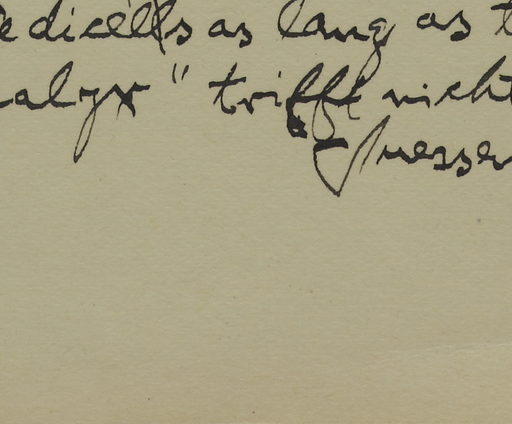 edicells as lang as t
alyx" trifft nicht
Suessen